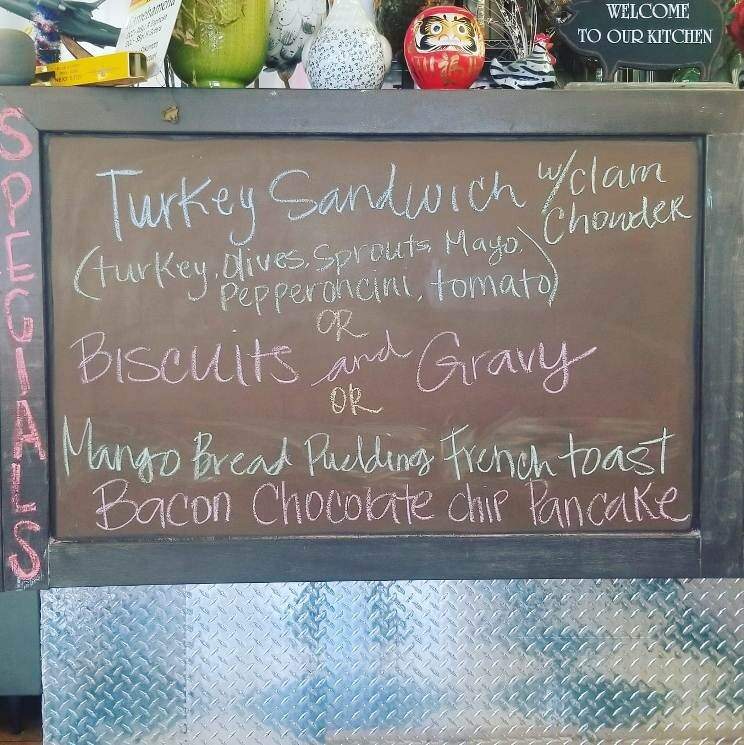 WELCOME
TO OUR KITCHEN
SPECIALS
Turkey Sandwich w/clam
Chowder
(turkey, olives, Sprouts, Mayo,
Pepperoncini, tomato)
OR
Biscuits and Gravy
OR
Mango Bread Pudding French toast
Bacon Chocolate chip Pancake